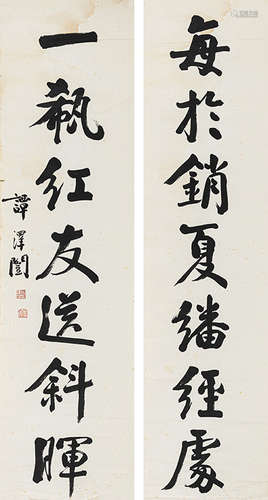 每於銷夏繙經處
一瓻紅友送斜暉
譚澤闓